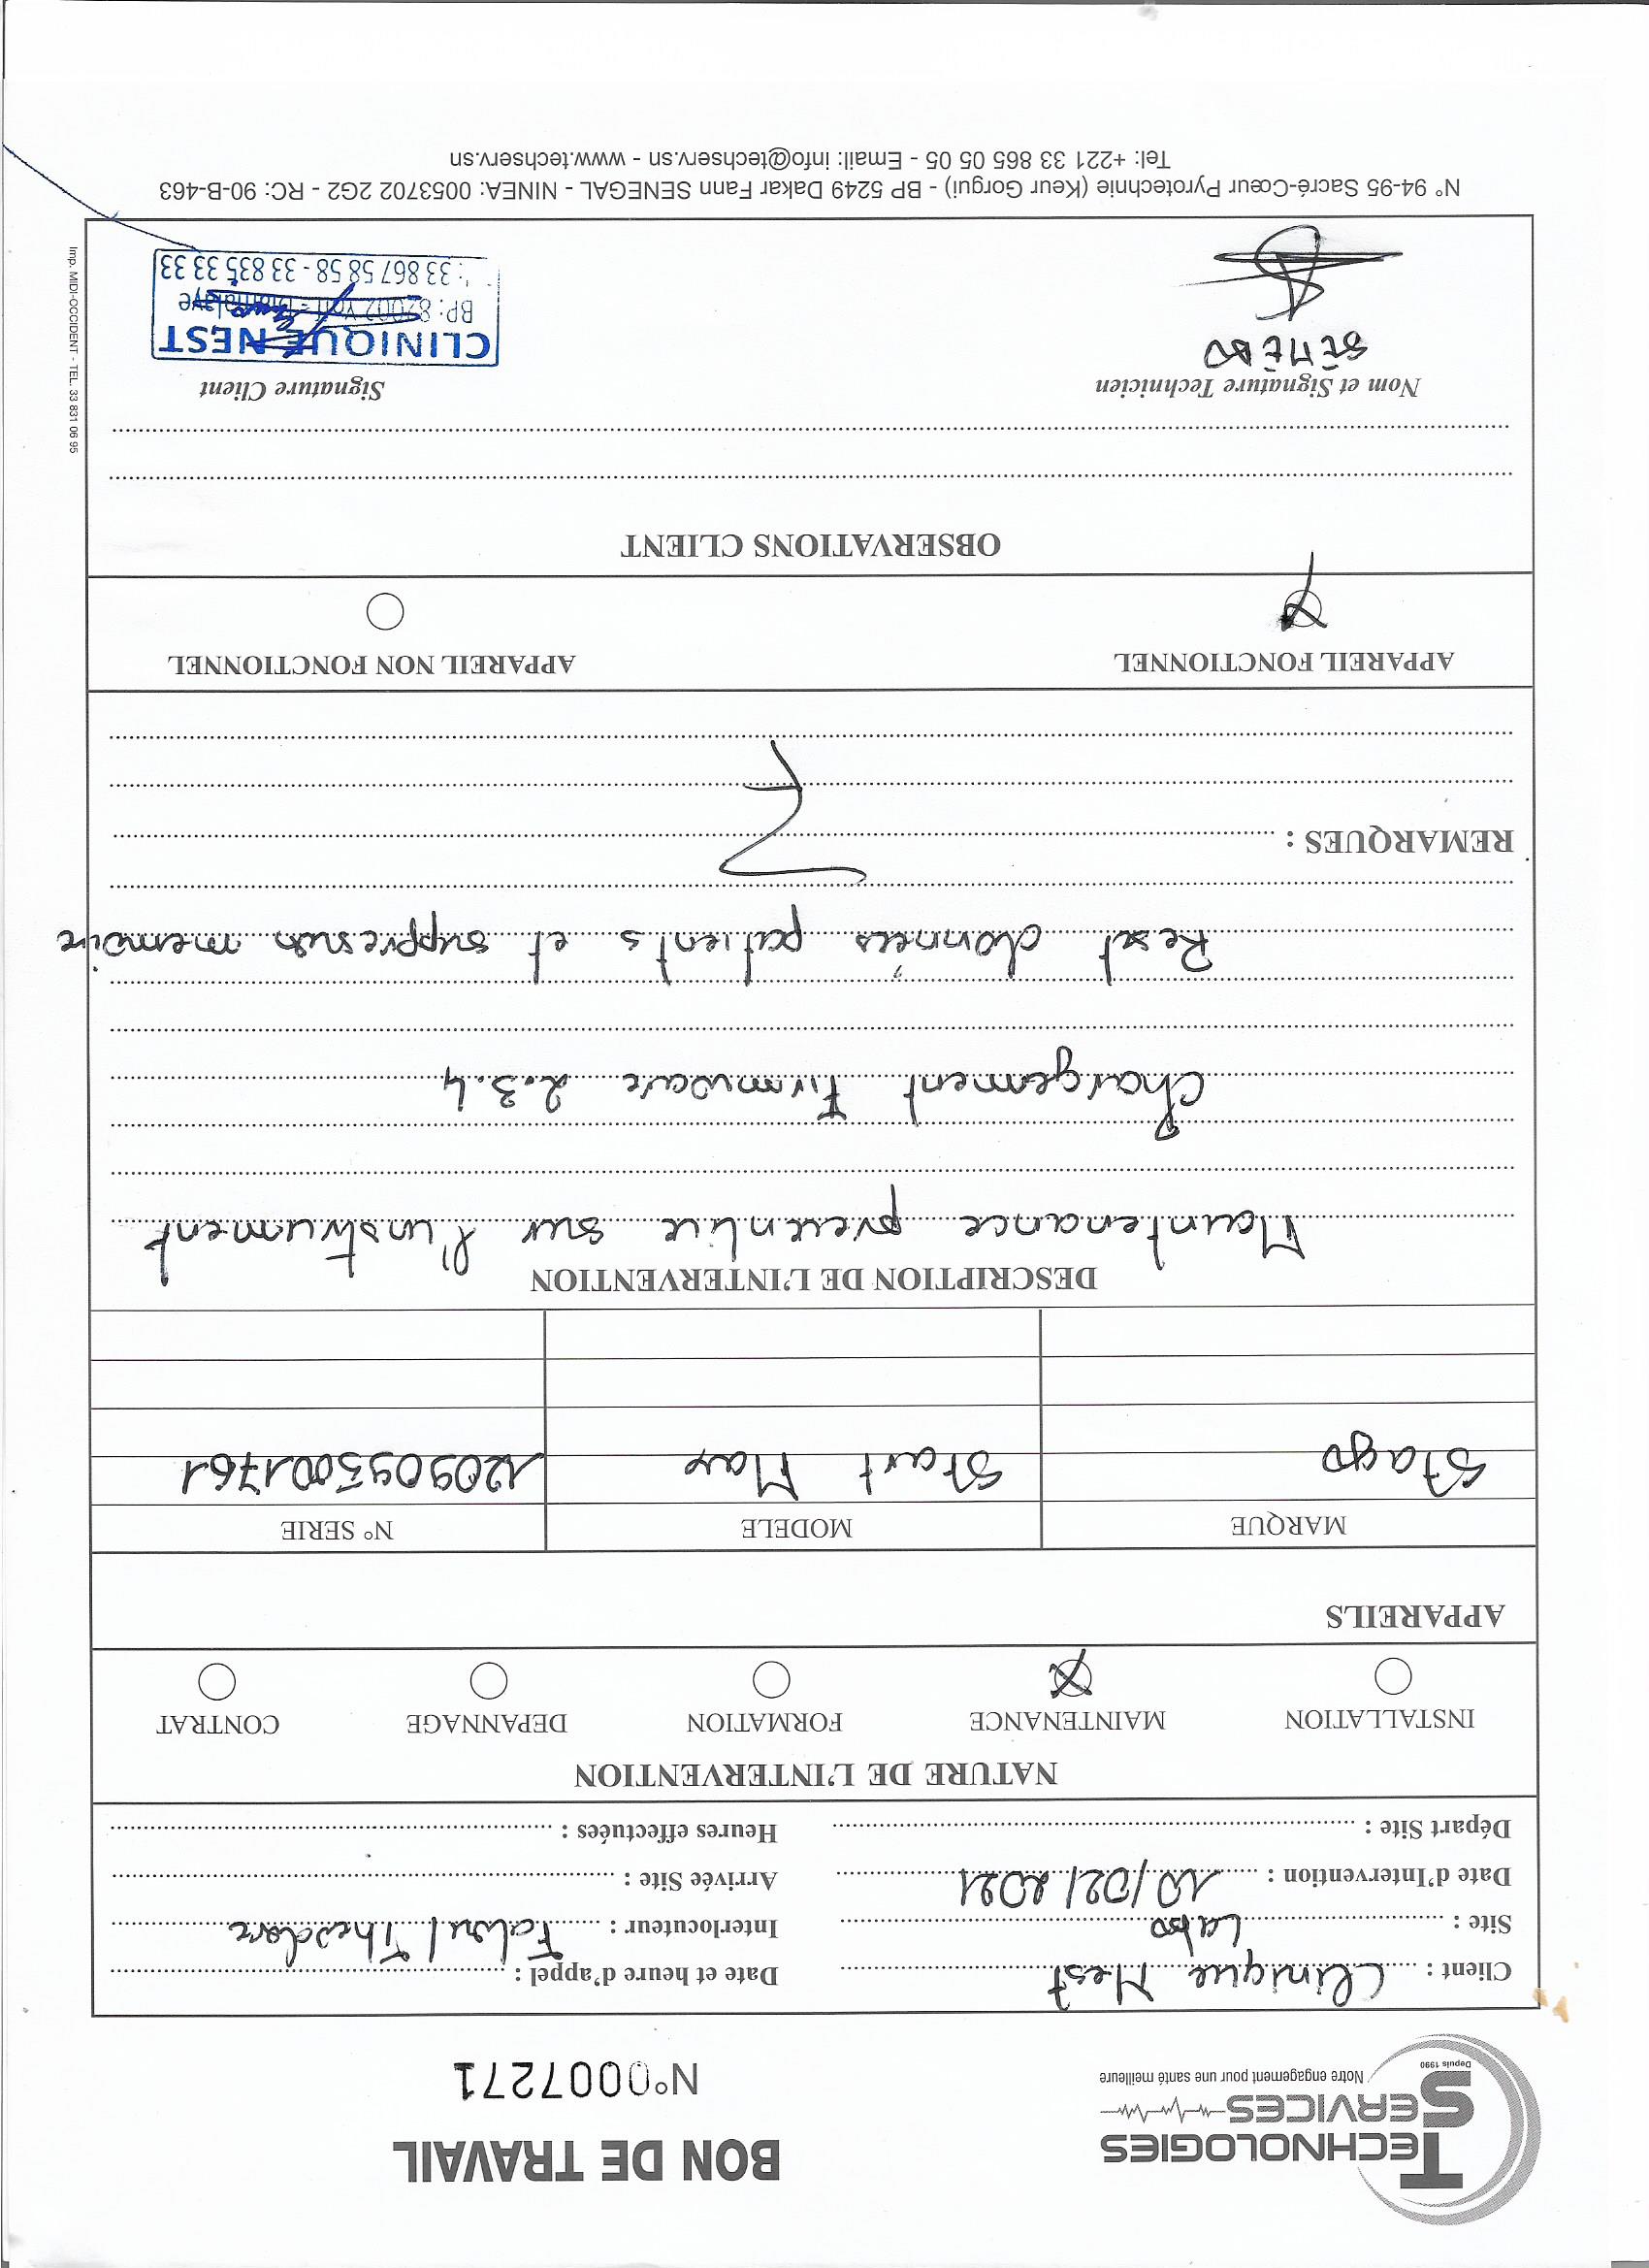 TECHNOLOGIES
SERVICES
Depuis 1990
Notre engagement pour une santé meilleure
BON DE TRAVAIL
N°0007271
Client : Clinique Nest
Date et heure d'appel :
Site : Labo
Interlocuteur : / Theodore
Date d'Intervention : 10/02/2021
Arrivée Site :
Départ Site :
Heures effectuées :
NATURE DE L'INTERVENTION
INSTALLATION MAINTENANCE FORMATION DEPANNAGE CONTRAT
X
APPAREILS
MARQUE MODELE N° SERIE
Stago Start Max 1209093001761
DESCRIPTION DE L'INTERVENTION
Maintenance preventive sur l'instrument
Chargement Firmware 2.3.4
Reset données patients et suppression memoire
REMARQUES :
APPAREIL FONCTIONNEL APPAREIL NON FONCTIONNEL
X
OBSERVATIONS CLIENT
Nom et Signature Technicien
Signature Client
SEMEDO
CLINIQUE NEST
BP: 82002 Yoff
: 33 867 58 58 - 33 835 33 33
N° 94-95 Sacré-Cœur Pyrotechnie (Keur Gorgui) - BP 5249 Dakar Fann SENEGAL - NINEA: 0053702 2G2 - RC: 90-B-463
Tel: +221 33 865 05 05 - Email: info@techserv.sn - www.techserv.sn
Imp. MIDI-OCCIDENT - TEL. 33 831 06 95